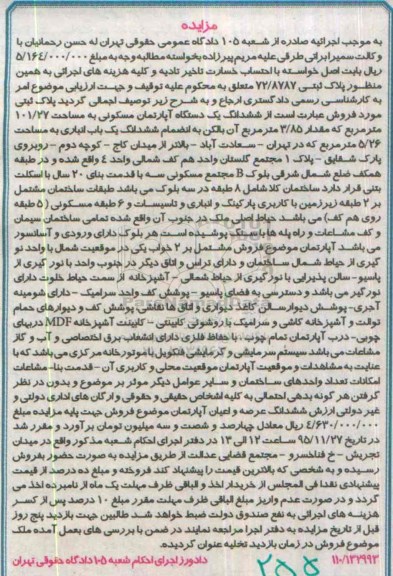 مزایده
به موجب اجرائیه صادره از شعبه ۱۰۵ دادگاه عمومی حقوقی تهران له حسن رحمانیان با
وکالت سمیرا براتی طرقی علیه مریم پیرزاده بخواسته مطالبه وجه به مبلغ ۵/۱۶۴/۰۰۰/۰۰۰
ریال بابت اصل خواسته با احتساب خسارت تاخیر تادیه و کلیه هزینه های اجرائی به همین
منظور پلاک ثبتی ۷۲/۸۷۸۷ متعلق به محکوم علیه توقیف و جهت ارزیابی موضوع امر
به کارشناسی رسمی دادگستری ارجاع و به شرح زیر توصیف اجمالی گردید پلاک ثبتی
مورد فروش عبارت است از ششدانگ یک دستگاه آپارتمان مسکونی به مساحت ۱۰۱/۲۷
مترمربع که مقدار ۳/۸۵ مترمربع آن بالکن به انضمام ششدانگ یک باب انباری به مساحت
۵/۲۶ مترمربع که در تهران - سعادت آباد - بالاتر از میدان کاج - کوچه دوم - روبروی
پارک شقایق - پلاک ۱ مجتمع گلستان واحد هم کف شمالی واحد ۴ واقع شده و در طبقه
همکف ضلع شمال شرقی بلوک B مجتمع مسکونی سه با قدمت بنای ۲۰ سال با اسکلت
بتنی قرار دارد ساختمان کلا شامل ۸ طبقه در سه بلوک می باشد طبقات ساختمان مشتمل
بر ۲ طبقه زیرزمین با کاربری پارکینگ و انباری و تاسیسات و ۶ طبقه مسکونی (۵ طبقه
روی هم کف) می باشد حیاط اصلی ملک در جنوب آن واقع شده تمامی ساختمان سیمان
و کف مشاعات و راه پله ها با سنگ پوشیده است هر بلوک دارای ورودی و آسانسور
می باشد آپارتمان موضوع فروش مشتمل بر ۲ خواب یکی در موقعیت شمال با واحد نو
گیری از حیاط شمال ساختمان و دارای تراس و اتاق دیگر در جنوب واحد با نور گیری از
پاسیو - سالن پذیرایی با نور گیری از حیاط شمالی - آشپزخانه از سمت حیاط خلوت دارای
نور گیر می باشد و دسترسی به فضای پاسیو - پوشش کف واحد سرامیک - دارای شومینه
آجری - پوشش دیوار سالن کاغذ دیواری و اتاق ها نقاشی پوشش کف و دیوارهای حمام
توالت و آشپزخانه کاشی و سرامیک با روشوئی کابینتی - کابینت آشپزخانه MDF دربهای
چوبی - درب آپارتمان تمام چوب با حفاظ فلزی دارای انشعاب برق اختصاصی و آب و گاز
مشاعات می باشد سیستم سرمایشی و گرمایشی فنکویل با موتورخانه مرکزی می باشد که با
عنایت به مشاهدات و موقعیت آپارتمان موقعیت محلی و کاربری آن - قدمت بنا، مشاعات
امکانات تعداد واحدهای ساختمان و سایر عوامل دیگر موثر بر موضوع و بدون در نظر
گرفتن هر گونه بدهی احتمالی به کلیه اشخاص حقیقی و حقوقی و ارگان های اداری دولتی و
غیر دولتی ارزش ششدانگ عرصه و اعیان آپارتمان موضوع فروش جهت پایه مزایده مبلغ
۴/۶۳۰/۰۰۰/۰۰۰ ریال معادل چهارصد و شصت و سه میلیون تومان برآورد و مقرر شد
در تاریخ ۹۵/۱۱/۲۷ ساعت ۱۲ الی ۱۳ در دفتر اجرای احکام شعبه مذکور واقع در میدان
تجریش - خ فناخسرو - مجتمع قضایی عدالت از طریق مزایده به صورت حضور بفروش
رسیده و به شخصی که بالاترین قیمت را پیشنهاد کند فروخته و مبلغ ده درصد از قیمت
پیشنهادی نقدا فی المجلس از خریدار اخذ و الباقی ظرف مهلت یک ماه از نامبرده اخذ می
گردد و در صورت عدم واریز مبلغ الباقی ظرف مهلت مقرر مبلغ ۱۰ درصد پس از کسر
هزینه های اجرائی به نفع صندوق دولت ضبط خواهد شد طالبین جهت بازدید پنج روز
قبل از تاریخ مزایده به دفتر اجرا مراجعه نمایند در ضمن با بررسی های بعمل آمده ملک
موضوع فروش در زمان بازدید تخلیه عنوان گردیده.
۱۱۰/۱۳۲۹۹۳ دادورز اجرای احکام شعبه ۱۰۵ دادگاه حقوقی تهران
۲۵۵